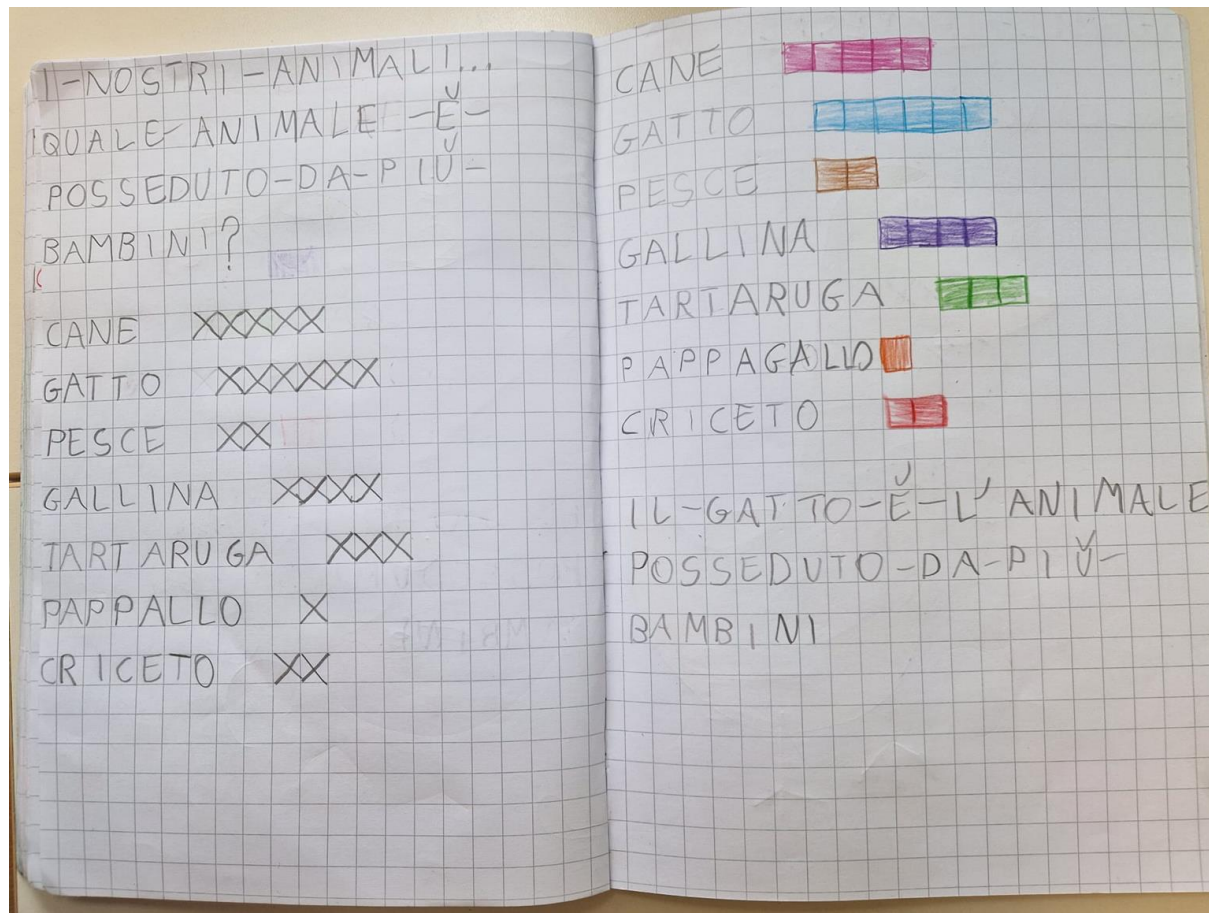 I-NOSTRI-ANIMALI...
QUALE-ANIMALE-Ĕ-
POSSEDUTO-DA-PIŬ-
BAMBINI?
CANE XXXXX
GATTO XXXXXX
PESCE XX
GALLINA XXXX
TARTARUGA XXX
PAPPALLO X
CRICETO XX
CANE
GATTO
PESCE
GALLINA
TARTARUGA
PAPPAGALLO
CRICETO
IL-GATTO-Ĕ-L'ANIMALE
POSSEDUTO-DA-PIŬ-
BAMBINI